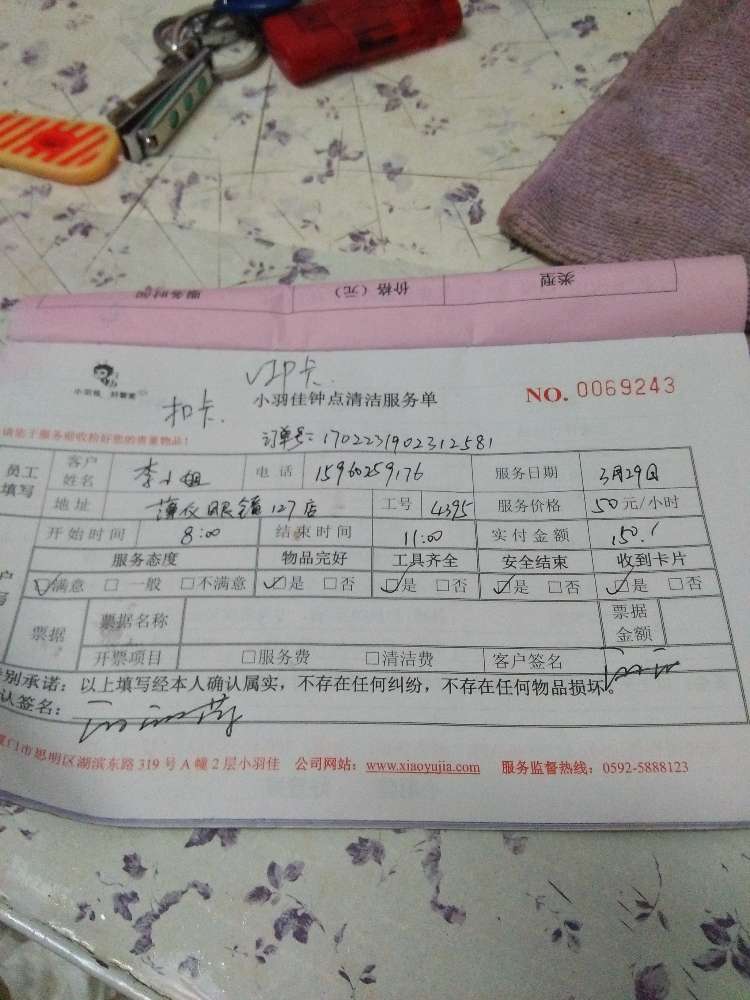 类型 价格（元） 服务时间
VIP卡
小羽佳 好管家
扣卡
小羽佳钟点清洁服务单
NO. 0069243
请您于服务前收拾好您的贵重物品！
订单号：1702231902312581
员工填写 客户姓名 李小姐 电话 15960259176 服务日期 3月29日
地址 眼镜127店 工号 4395 服务价格 50元/小时
开始时间 8:00 结束时间 11:00 实付金额 150.
服务态度 物品完好 工具齐全 安全结束 收到卡片
☑满意 □一般 □不满意 ☑是 □否 ☑是 □否 ☑是 □否 ☑是 □否
票据 票据名称 票据金额
开票项目 □服务费 □清洁费 客户签名
别承诺：以上填写经本人确认属实，不存在任何纠纷，不存在任何物品损坏。
认签名：
门市思明区湖滨东路319号A幢2层小羽佳 公司网站：www.xiaoyujia.com 服务监督热线：0592-5888123